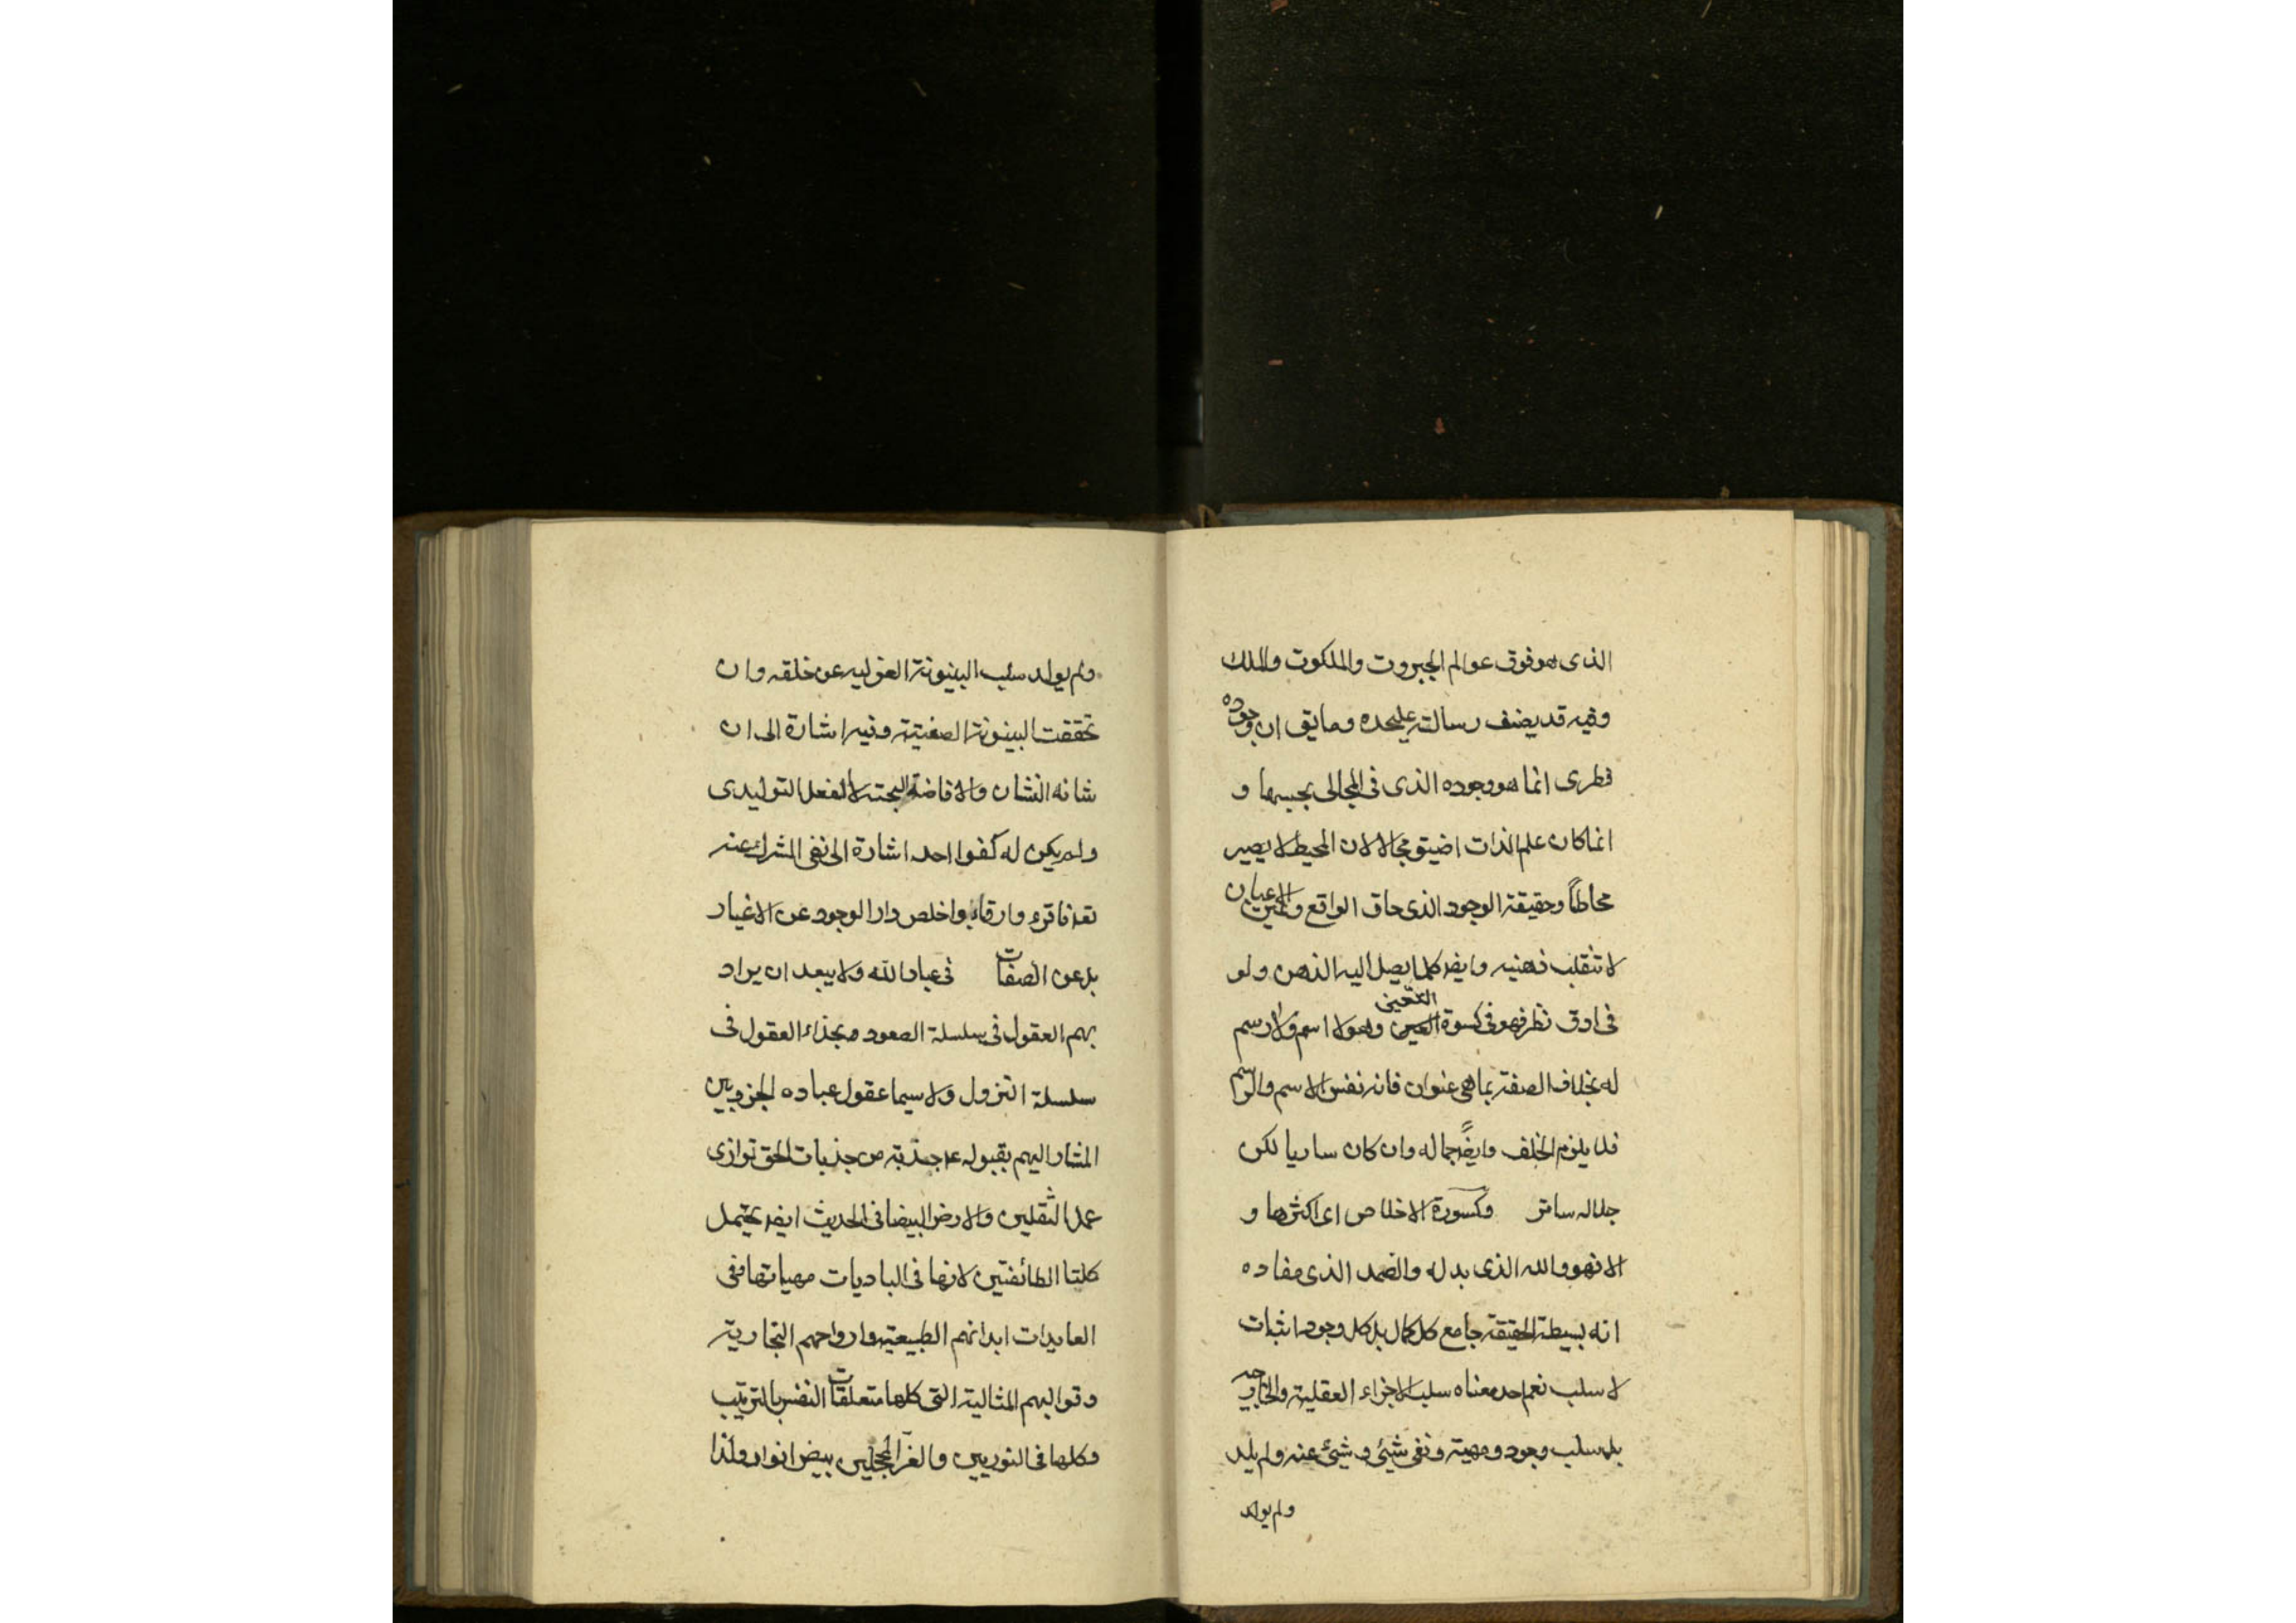 الذى هو فوق عوالم الجبروت والملكوت والملك
وفيه قد يضف رسالته عليحده وما يق ان وجوده
فطرى انما هو وجوده الذى فى المجالى بحبسها و
انما كان علم الذات اضيق مجالا لان المحيط لا يصير
محاطاً وحقيقة الوجود الذى حاق الواقع وعين الاعيان
لا تنقلب ذهنيه وايضا كلما يصل اليه الذهن ولو
فى ادق نظر فهو فى كسوة التعين وهو لا اسم ولا رسم
له بخلاف الصفة بما هى عنوان فانه نفس الاسم والرسم
فلا يلزم الخلف وايضاً جماله وان كان ساريا لكن
جلاله ساتر وكسورة الاخلاص اى اكثرها و
الا فهو والله الذى بدل له والصمد الذى مفاده
انه بسيطة الحقيقة جامع كل كمال بل كل وجود اثبات
لا سلب نعم احد معناه سلب الاجزاء العقلية والخارجيه
بل سلب وجود ومهية ونفى شيئ وشيئ عنه ولم يلد
ولم يولد
ولم يولد سلب البينونة العزليه عن خلقه وان
تحققت البينونة الصفتية وفيه اشارة الى ان
شانه النشان والافاضة البحتة لا الفعل التوليدى
ولم يكن له كفوا احد اشارة الى نفى الشرك عنه
بل عن الصفات فى عباد الله ولا يبعد ان يراد
بهم العقول فى سلسلة الصعود بحذاء العقول فى
سلسلة النزول ولا سيما عقول عباده
المشار اليهم بقوله ع جذبة من جذبات الحق توازى
عمل الثقلين والارض البيضا فى الحديث ايضا يحتمل
كلتا الطائفتين لانها فى الباديات مهياتها وفى
العايدات ابدانهم الطبيعية وارواحهم البخارية
وقوالبهم المثالية التى كلها متعلقات النفس بالترتيب
وكلها فى النوريين والغر المحجلين بيض انوار ولذا